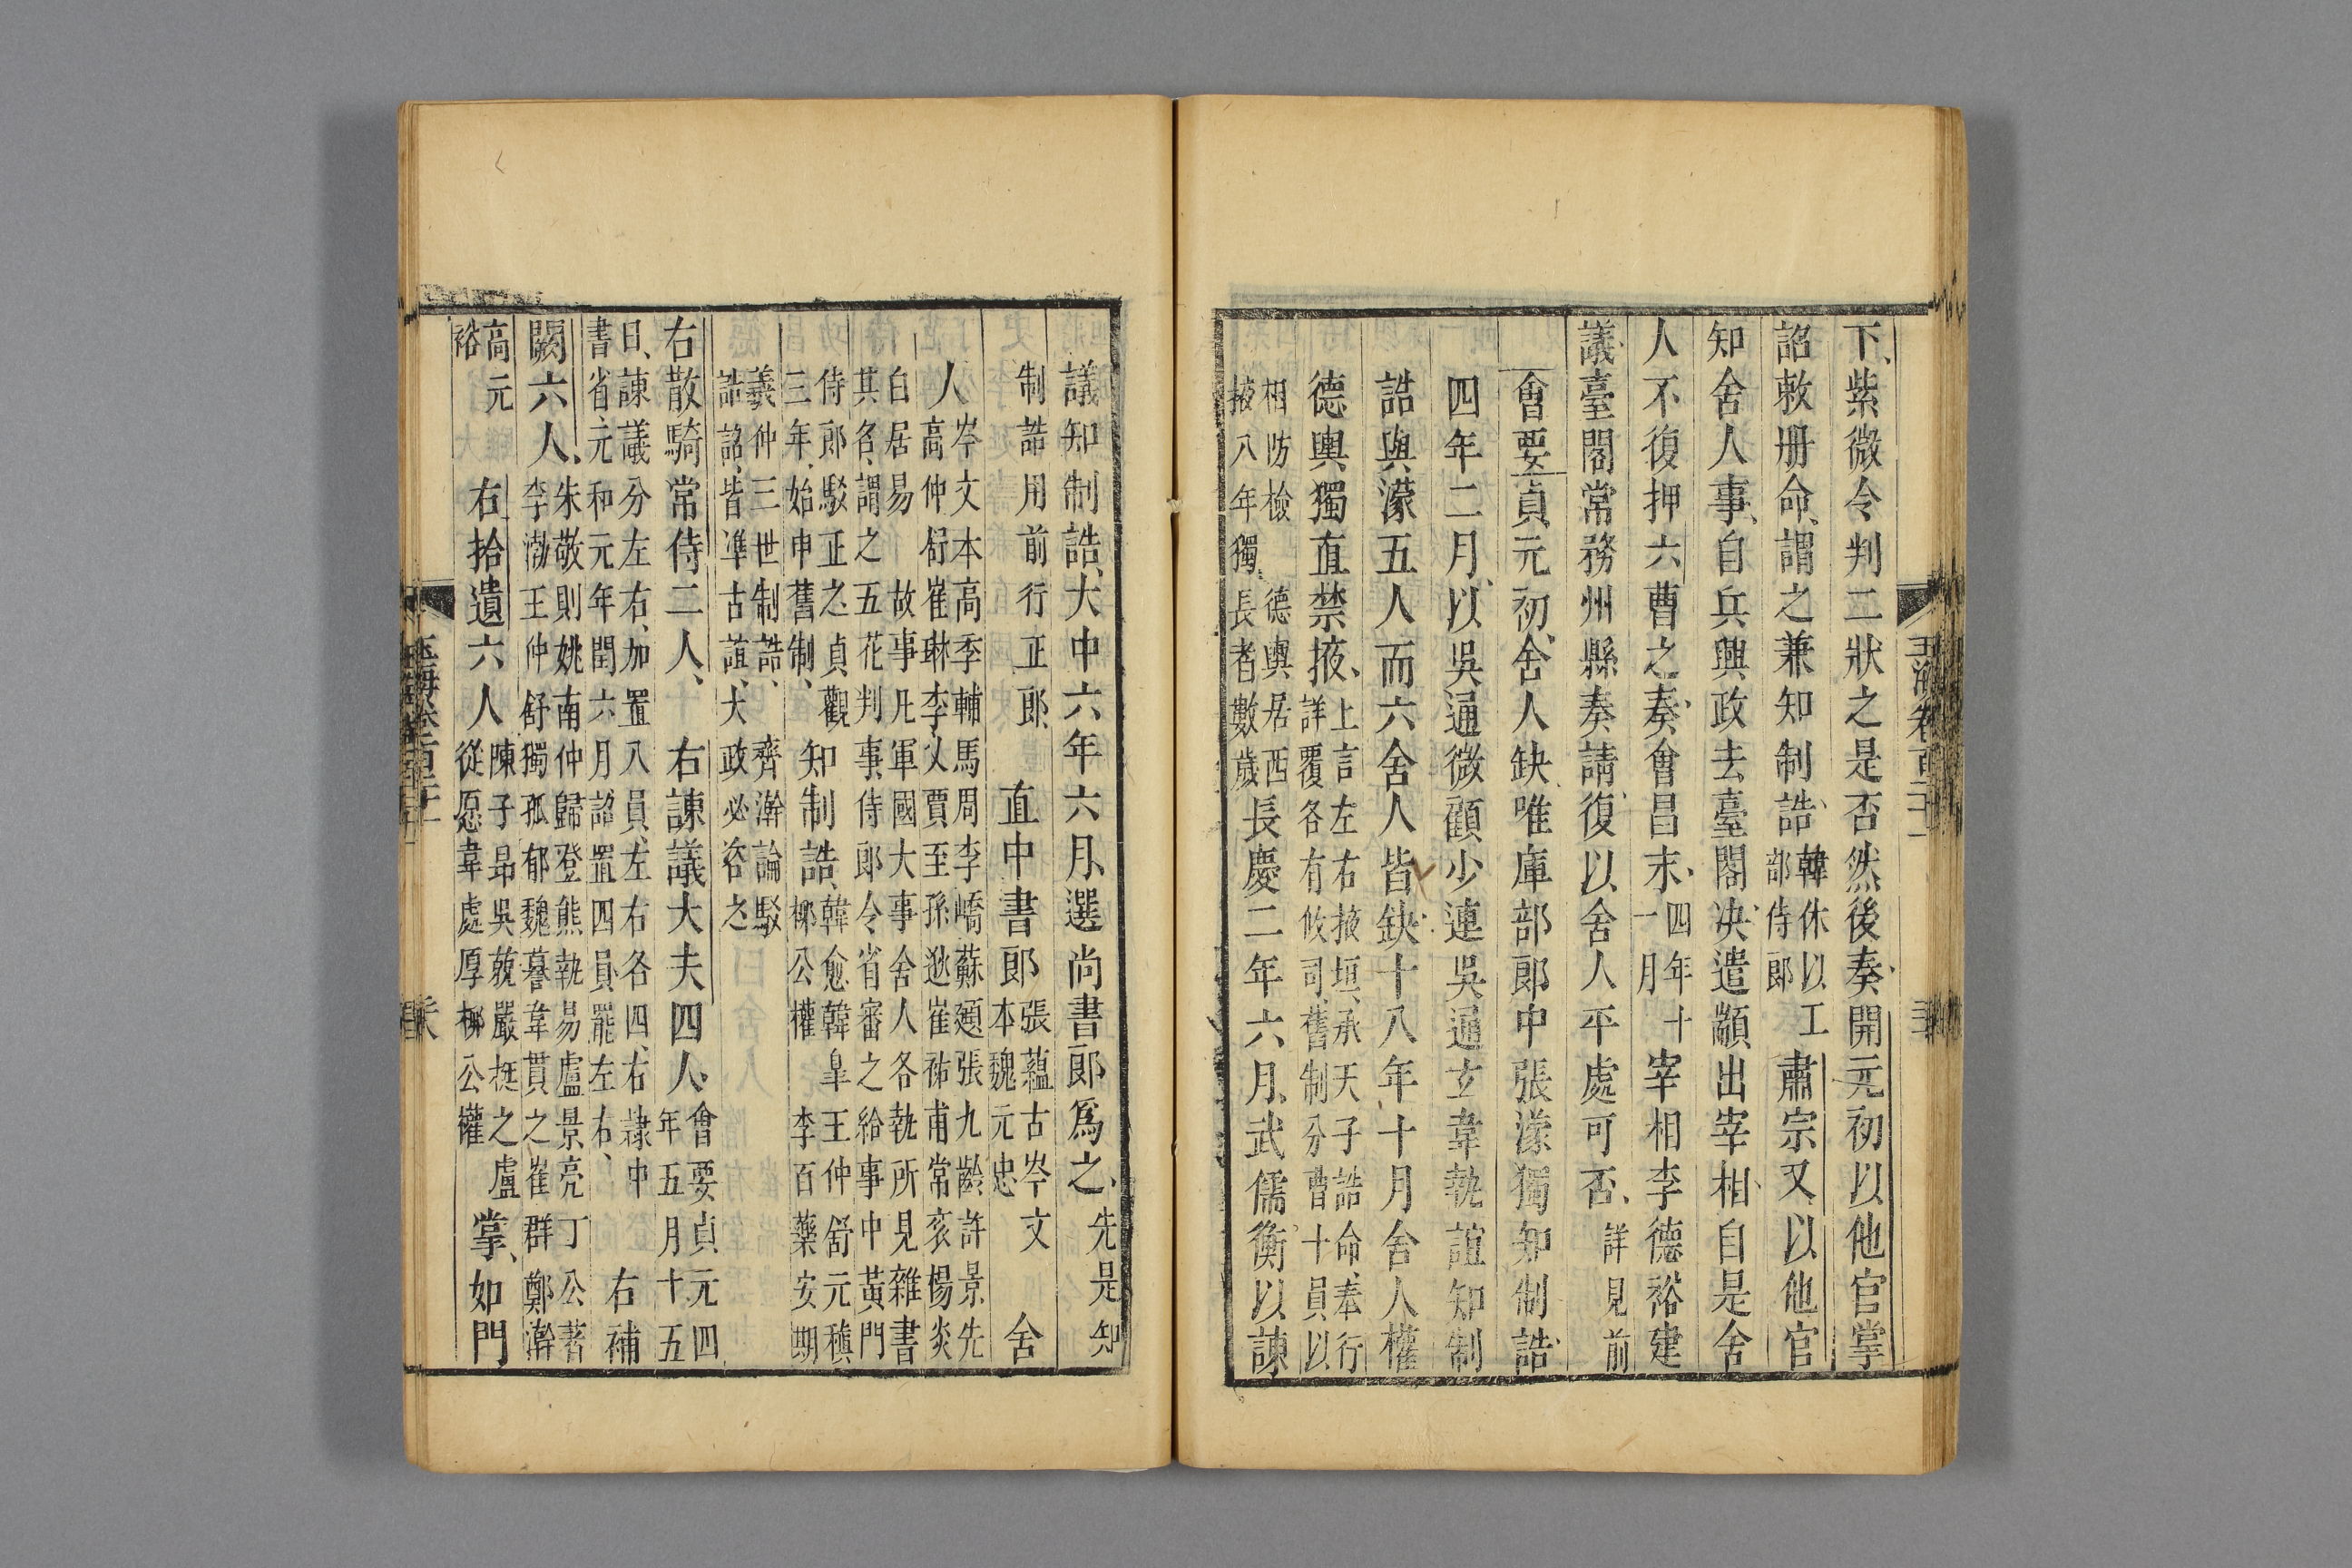 下紫微令判二狀之是否然後奏開元初以他官掌
詔敕册命謂之兼知制誥韓休以工部侍郎肅宗又以他官
知舍人事自兵興政去臺閣决遣顓出宰相自是舍
人不復押六曹之奏會昌末四年十一月宰相李德裕建
議臺閣常務州縣奏請復以舍人平處可否詳見前
會要貞元初舍人缺唯庫部郎中張濛獨知制誥
四年二月以吳通微顧少連吳通玄韋執誼知制
誥與濛五人而六舍人皆缺十八年十月舍人權
德輿獨直禁掖上言左右掖垣承天子誥命奉行詳覆各有攸司舊制分曹十員以
相防檢德輿居西掖八年獨長者數歲長慶二年六月武儒衡以諫
玉海卷百二十一
議知制誥大中六年六月選尚書郎爲之先是知
制誥用前行正郎直中書郎張蘊古岑文本魏元忠舍
人岑文本高季輔馬周李嶠蘇頲張九齡許景先高仲舒崔琳李乂賈至孫逖崔祐甫常袞楊炎
白居易故事凡軍國大事舍人各執所見雜書其名謂之五花判事侍郎令省審之給事中黃門
侍郎駮正之貞觀三年始申舊制知制誥韓愈韓臯王仲舒元稹柳公權李百藥安期
義仲三世制誥齊澣論駁誥詔皆準古誼大政必咨之
右散騎常侍二人右諫議大夫四人會要貞元四年五月十五
日諫議分左右加置八員左右各四右隷中書省元和元年閏六月詔置四員罷左右右補
闕六人朱敬則姚南仲歸登熊執易盧景亮丁公著李渤王仲舒獨孤郁魏謩韋貫之崔群鄭澣
高元裕右拾遺六人陳子昂吳兢嚴挺之盧從愿韋處厚柳公權掌如門
玉海卷百二十一